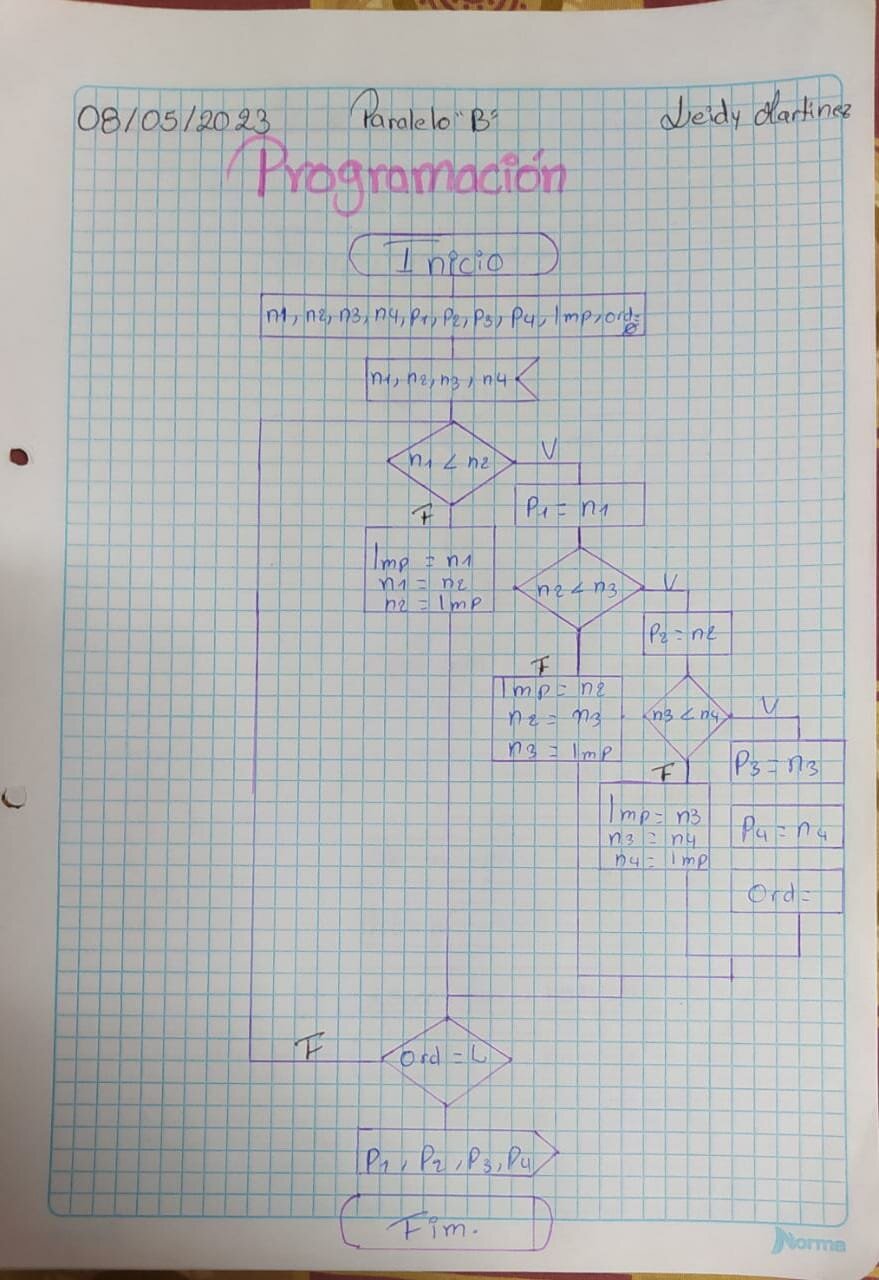 08/05/2023 Paralelo "B" Leidy Martinez
Programación
Inicio
n1, n2, n3, n4, P1, P2, P3, P4, Imp, ord=
n1, n2, n3, n4
n1 < n2
V
F
P1 = n1
Imp = n1
n1 = n2
n2 = Imp
n2 < n3
V
P2 = n2
F
Imp = n2
n2 = n3
n3 = Imp
n3 < n4
V
P3 = n3
F
Imp = n3
n3 = n4
n4 = Imp
P4 = n4
Ord =
F
Ord = L
P1, P2, P3, P4
Fim.
Norma